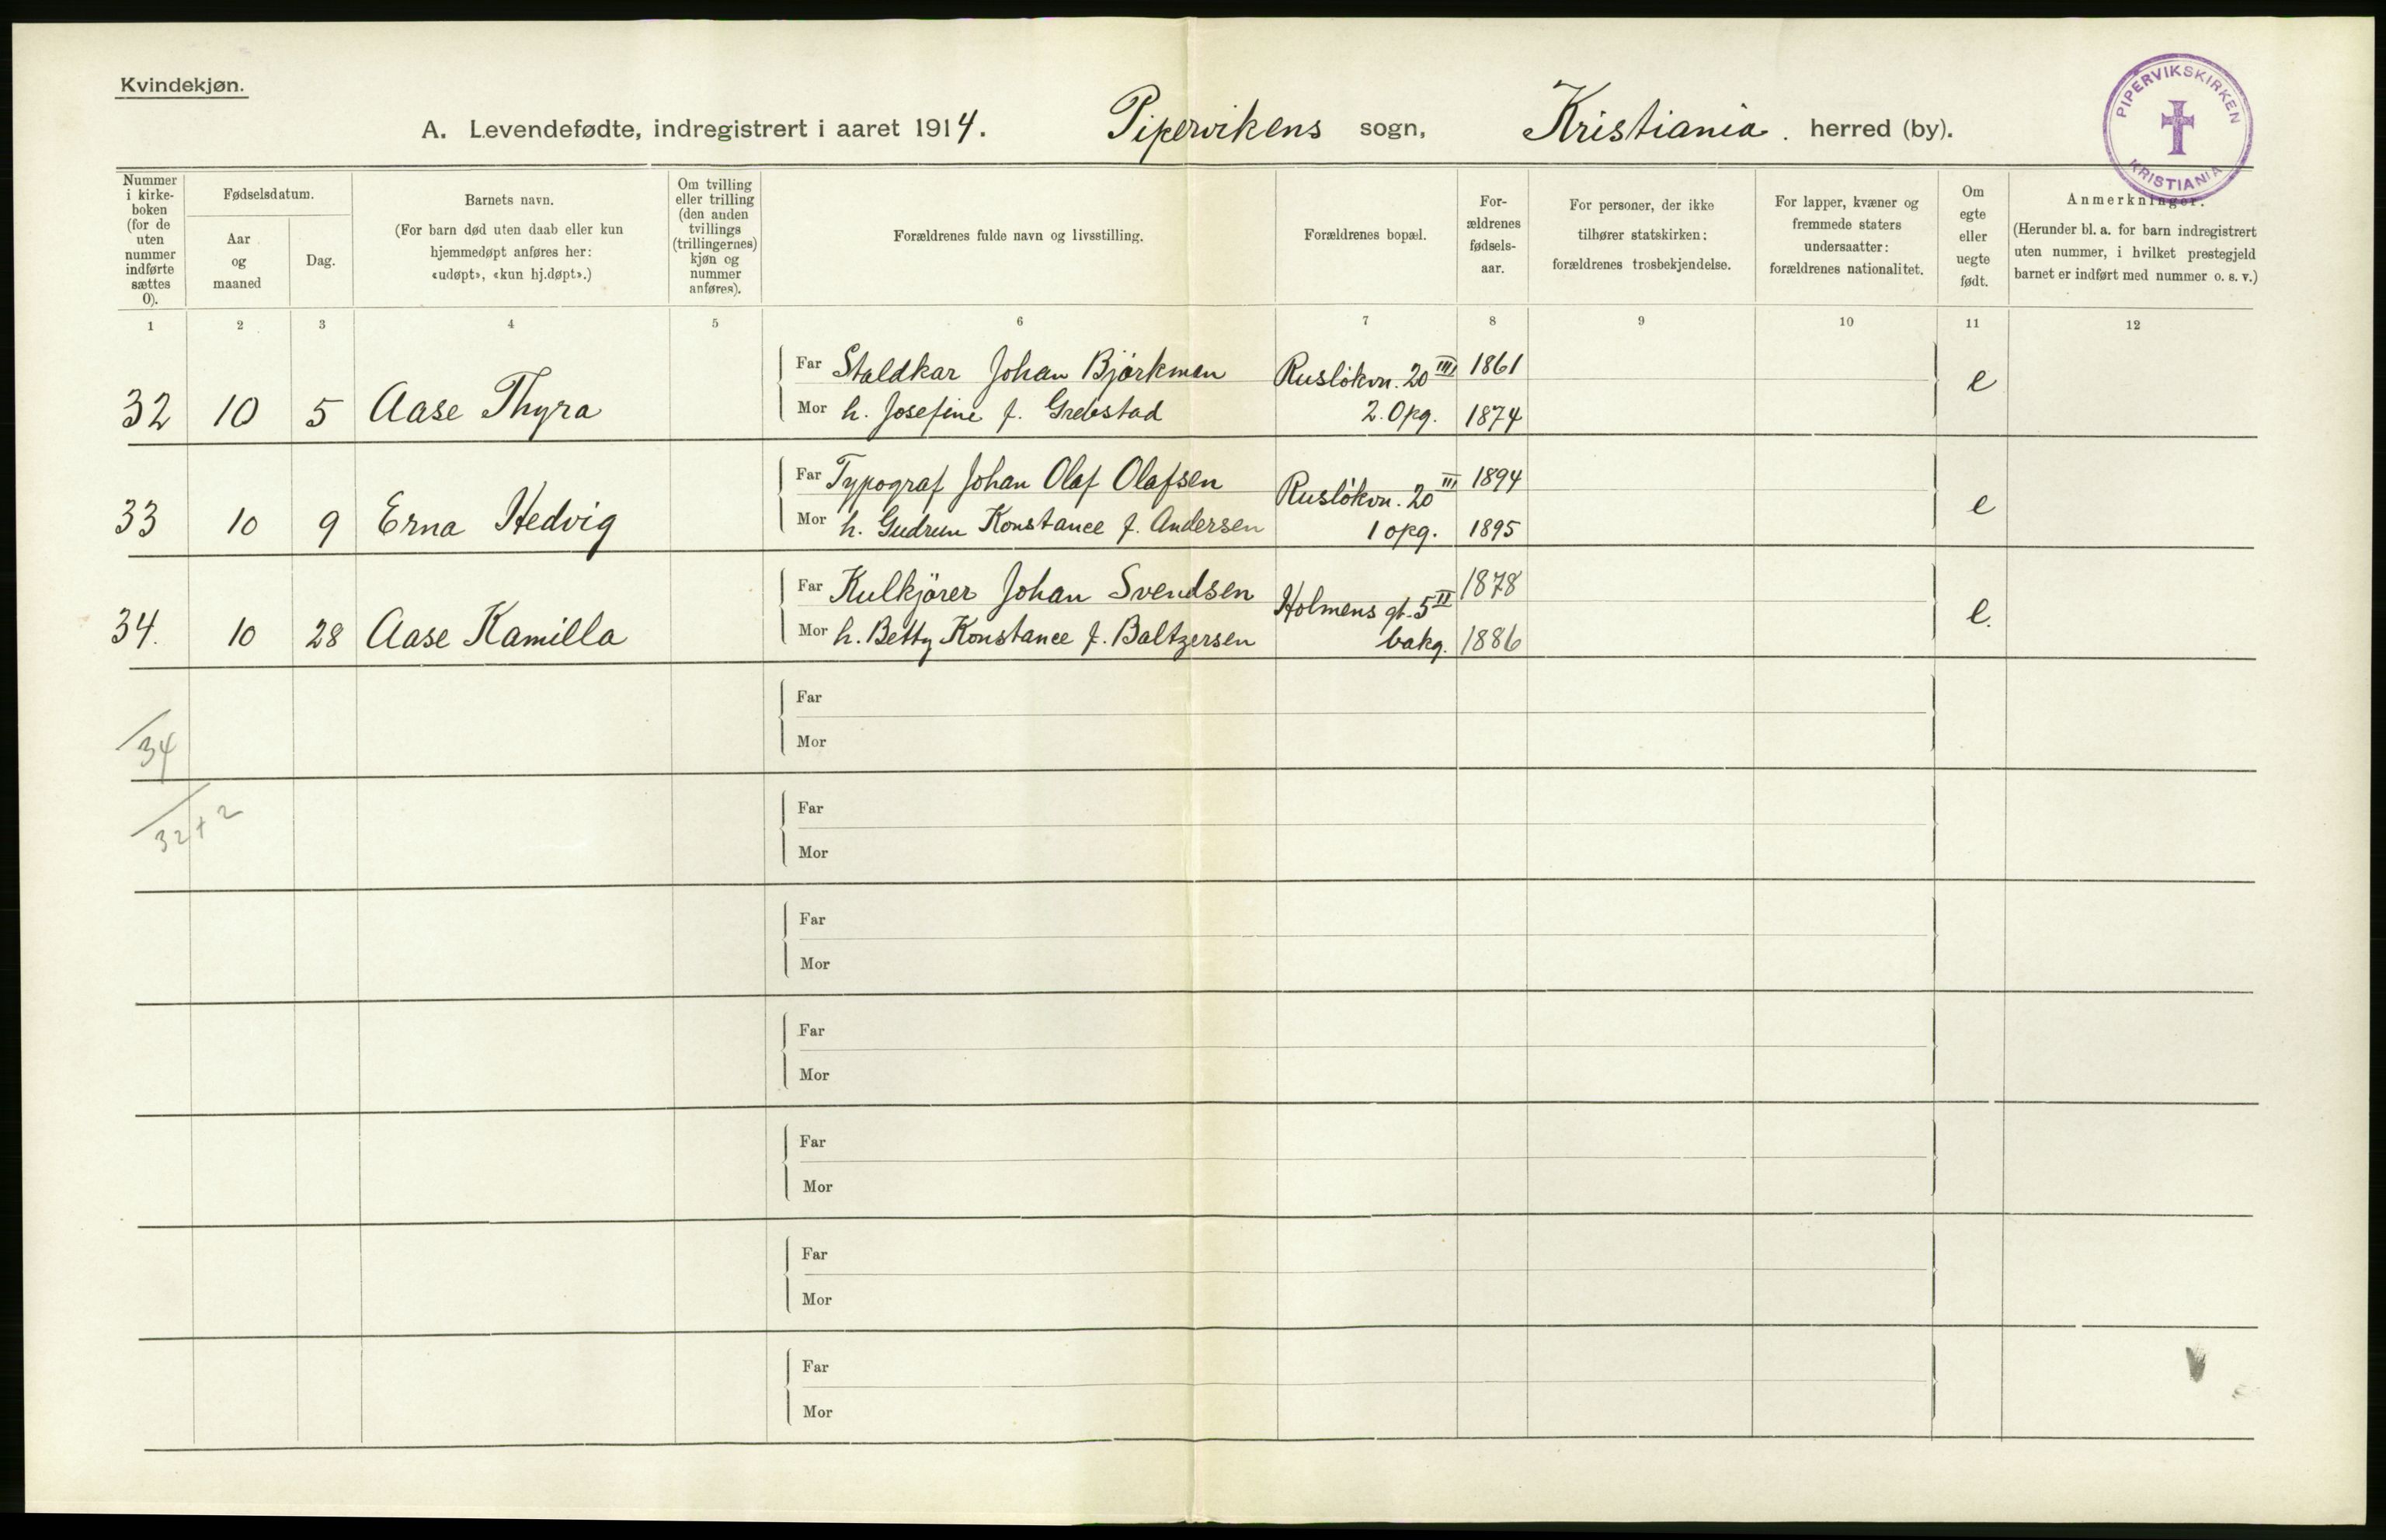 Kvindekjøn.
PIPERVIKSKIRKEN
KRISTIANIA
A. Levendefødte, indregistrert i aaret 1914. Pipervikens sogn, Kristiania. herred (by).
Nummer i kirke-boken (for de uten nummer indførte sættes 0).
Fødselsdatum.
Aar og maaned
Dag.
Barnets navn.
(For barn død uten daab eller kun hjemmedøpt anføres her: «udøpt», «kun hj.døpt».)
Om tvilling eller trilling (den anden tvillings (trillingernes) kjøn og nummer anføres).
Forældrenes fulde navn og livsstilling.
Forældrenes bopæl.
For-ældrenes fødsels-aar.
For personer, der ikke tilhører statskirken: forældrenes trosbekjendelse.
For lapper, kvæner og fremmede staters undersaatter: forældrenes nationalitet.
Om egte eller uegte født.
Anmerkninger.
(Herunder bl. a. for barn indregistrert uten nummer, i hvilket prestegjeld barnet er indført med nummer o. s. v.)
1 2 3 4 5 6 7 8 9 10 11 12
Far Staldkar Johan Björkman Ruslökvn. 20 III 1861 e
32 10 5 Aase Thyra Mor h. Josefine f. Grebstad 2. Opg. 1874
Far Typograf Johan Olaf Olafsen Ruslökvn. 20 III 1894 e
33 10 9 Erna Hedvig Mor h. Gudrun Konstance f. Andersen 1 opg. 1895
Far Kulkjörer Johan Svendsen Holmens gt. 5 II 1878 e.
34. 10 28 Aase Kamilla Mor h. Betty Konstance f. Baltzersen bakg. 1886
Far
34 Mor
Far
32 + 2
Mor
Far
Mor
Far
Mor
Far
Mor
Far
Mor
Far
Mor